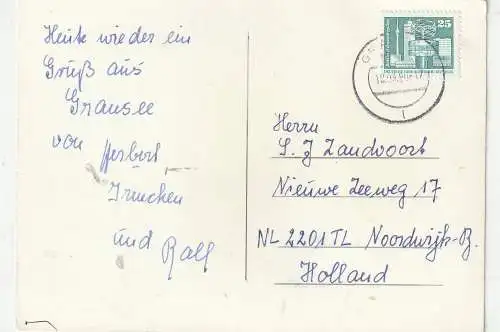 Heute wieder ein
Gruß aus
Gransee
von Herbert
Irmchen
und Ralf
25
Herrn
S. J Zandvoort
Nieuwe Zeeweg 17
NL 2201TL Noordwijk-B.
Holland